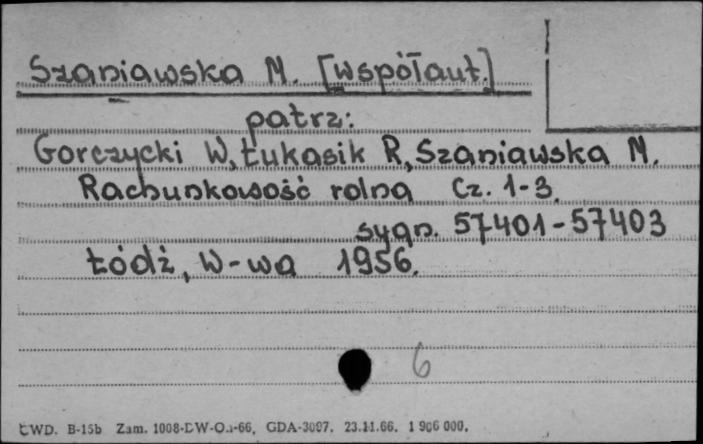 Szaniawska M. [współaut.]
patrz:
Gorczycki W, Łukasik R, Szaniawska M.
Rachunkowość rolna Cz. 1-3.
sygn. 57401-57403
Łódź, W-wa 1956.
6
ŁWD. B-15b Zam. 1008-DW-O.-66, GDA-3097. 23.11.66. 1 906 000.